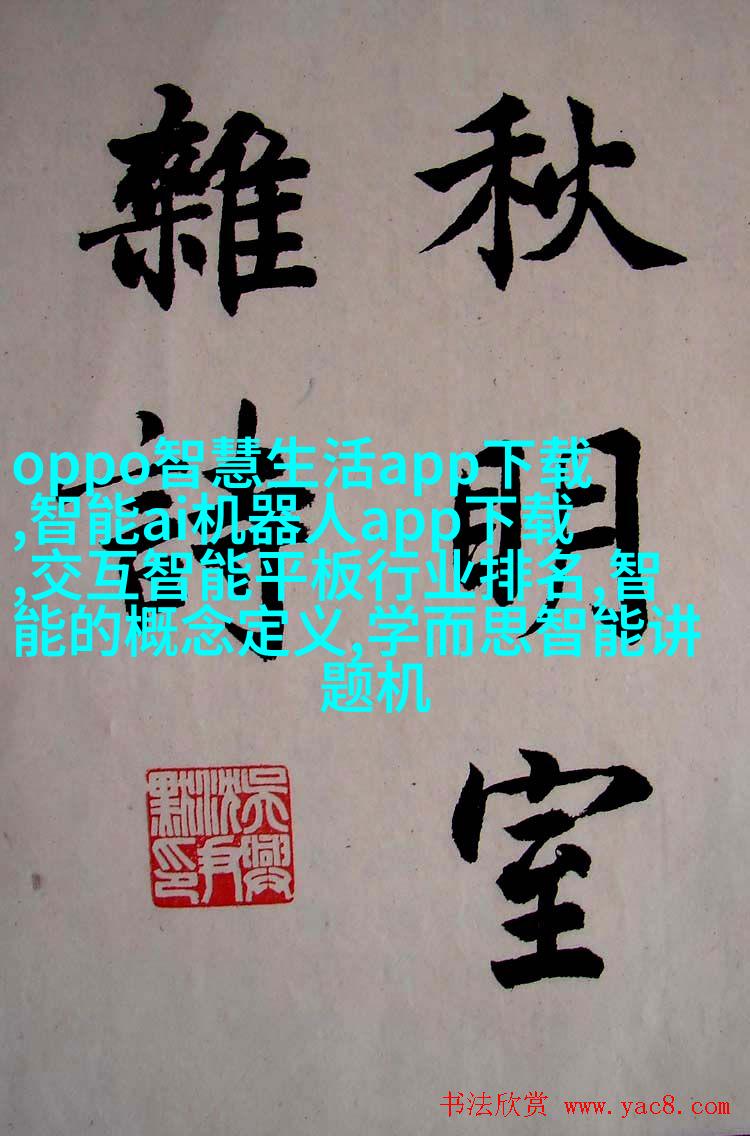 秋明室
雜詩
oppo智慧生活app下载
,智能ai机器人app下载
,交互智能平板行业排名,智
能的概念定义,学而思智能讲
题机
吳興
沈尹
默印
书法欣赏 www.yac8.com